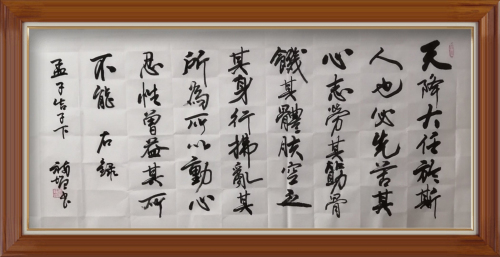 天降大任於斯
人也必先苦其
心志勞其筋骨
餓其體膚空乏
其身行拂亂其
所為所以動心
忍性曾益其所
不能 右錄
孟子告子下